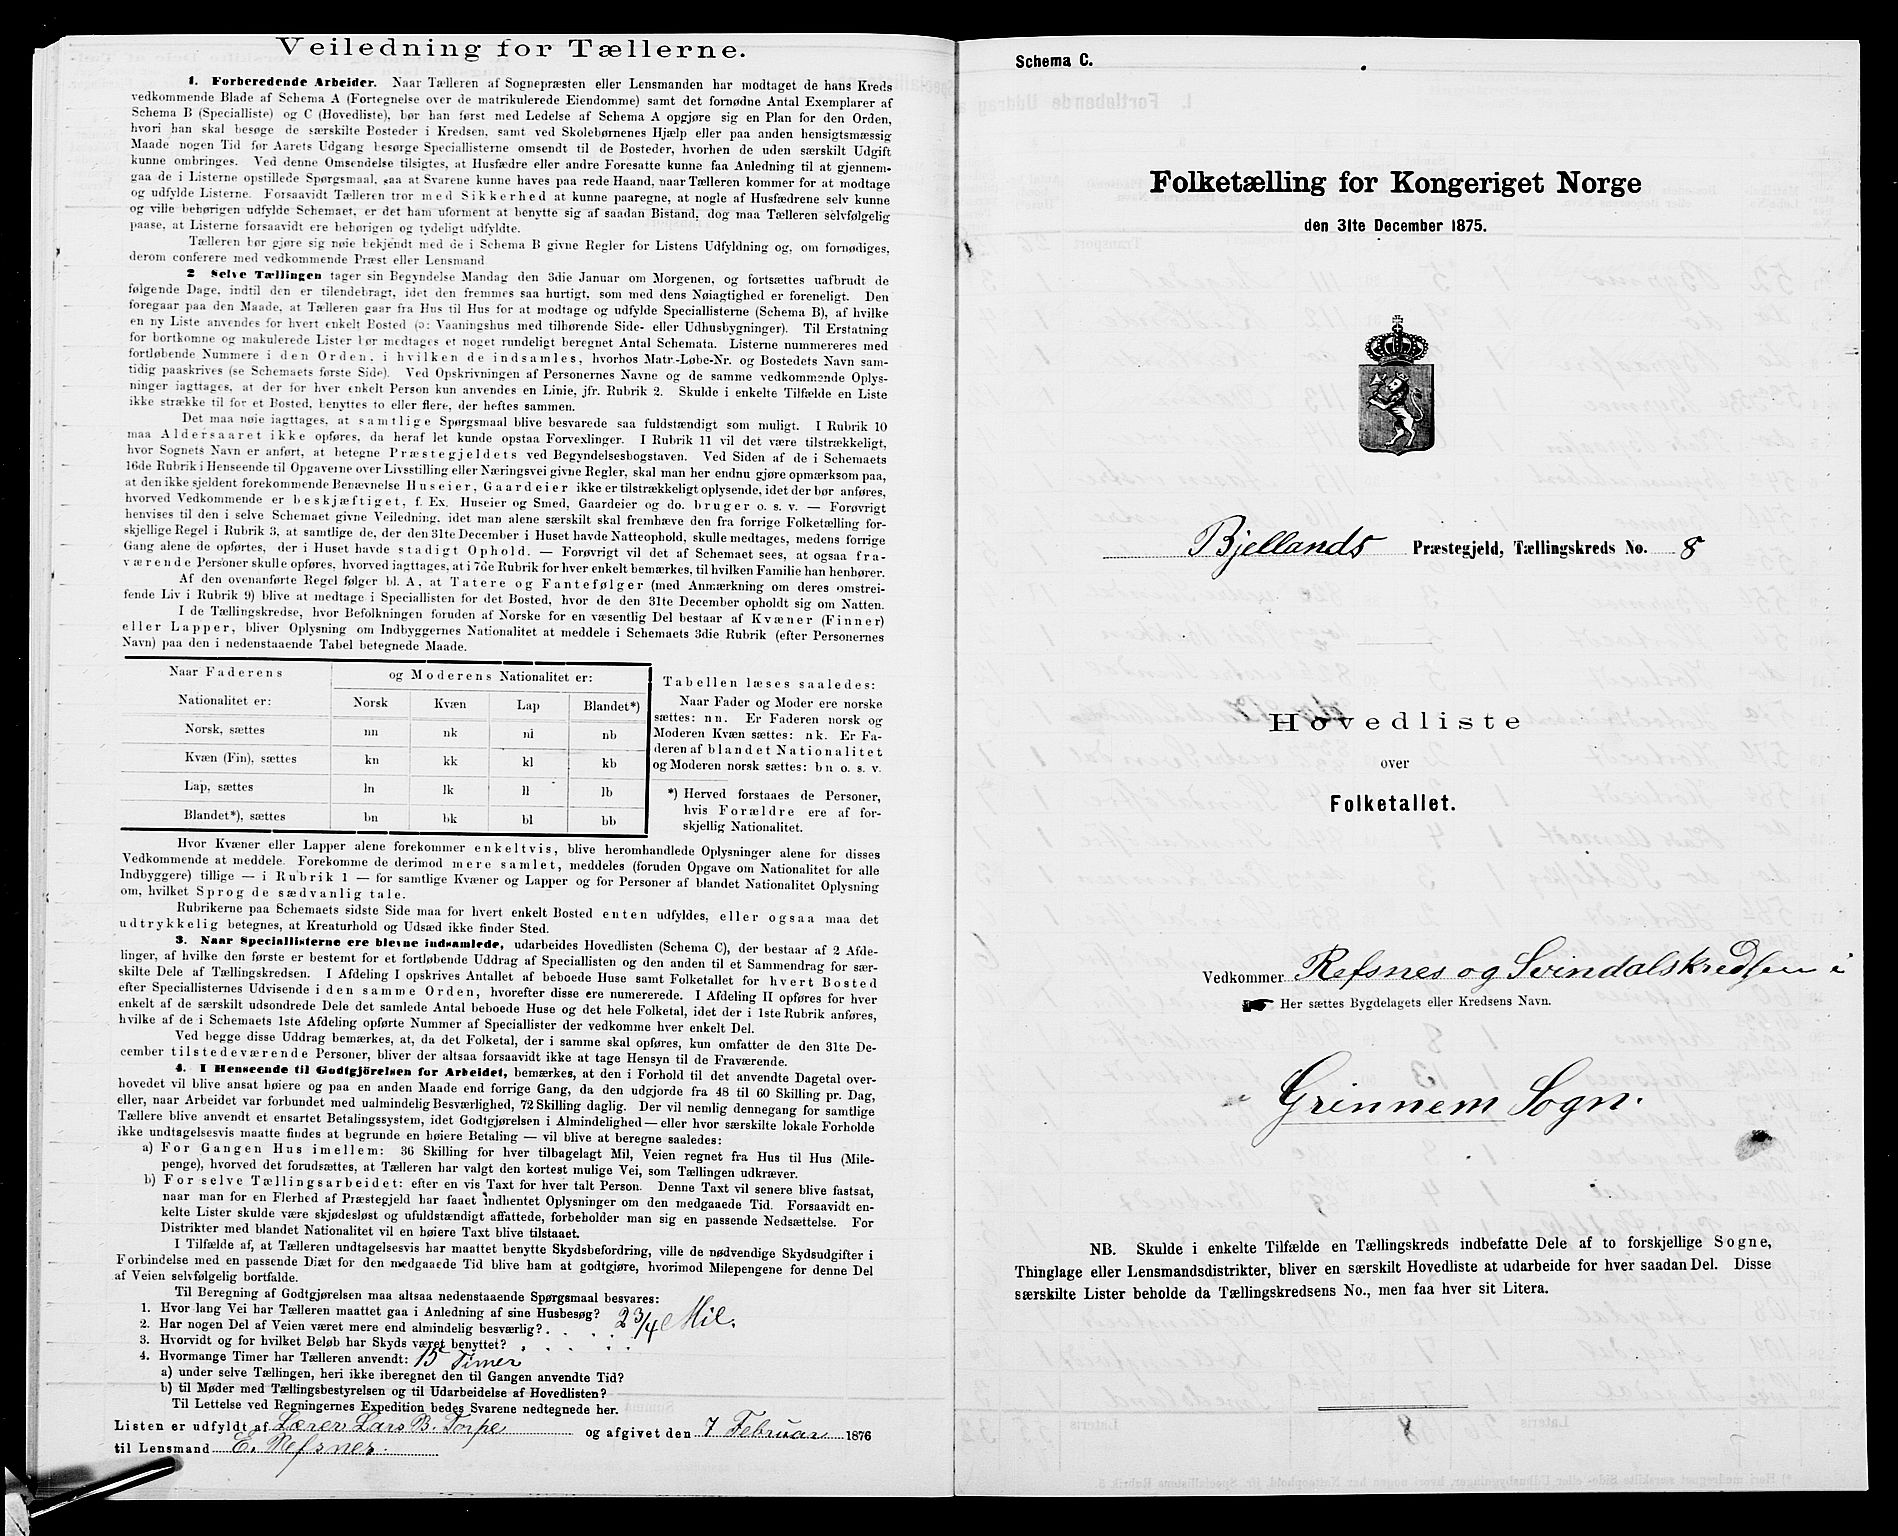 Veiledning for Tællerne.
1. Forberedende Arbeider. Naar Tælleren af Sognepræsten eller Lensmanden har modtaget de hans Kreds
vedkommende Blade af Schema A (Fortegnelse over de matrikulerede Eiendomme) samt det fornødne Antal Exemplarer af
Schema B (Specialliste) og C (Hovedliste), bør han først med Ledelse af Schema A opgjøre sig en Plan for den Orden,
hvori han skal besøge de særskilte Bosteder i Kredsen, samt ved Skolebørnenes Hjælp eller paa anden hensigtsmæssig
Maade nogen Tid før Aarets Udgang besørge Speciallisterne omsendt til de Bosteder, hvorhen de uden særskilt Udgift
kunne ombringes. Ved denne Omsendelse tilsigtes, at Husfædre eller andre Foresatte kunne faa Anledning til at gjennem-
gaa de i Listerne opstillede Spørgsmaal, saa at Svarene kunne haves paa rede Haand, naar Tælleren kommer for at modtage
og udfylde Listerne. Forsaavidt Tælleren tror med Sikkerhed at kunne paaregne, at nogle af Husfædrene selv kunne
og ville behørigen udfylde Schemaet, er det ham uforment at benytte sig af saadan Bistand, dog maa Tælleren selvfølgelig
paase, at Listerne forsaavidt ere behørigen og tydeligt udfyldte.
Tælleren bør gjøre sig nøie bekjendt med de i Schema B givne Regler for Listens Udfyldning og, om fornødiges,
derom conferere med vedkommende Præst eller Lensmand
2 Selve Tællingen tager sin Begyndelse Mandag den 3die Januar om Morgenen, og fortsættes uafbrudt de
følgende Dage, indtil den er tilendebragt, idet den fremmes saa hurtigt, som med dens Nøiagtighed er foreneligt. Den
foregaar paa den Maade, at Tælleren gaar fra Hus til Hus for at modtage og udfylde Speciallisterne (Schema B), af hvilke
en ny Liste anvendes for hvert enkelt Bosted (ɔ: Vaaningshus med tilhørende Side- eller Udhusbygninger). Til Erstatning
for bortkomne og makulerede Lister bør medtages et noget rundeligt beregnet Antal Schemata. Listerne nummereres med
fortløbende Nummere i den Orden, i hvilken de indsamles, hvorhos Matr.-Løbe-Nr. og Bostedets Navn sam-
tidig paaskrives (se Schemaets første Side). Ved Opskrivningen af Personernes Navne og de samme vedkommende Oplys-
ninger iagttages, at der for hver enkelt Person kun anvendes en Linie, jfr. Rubrik 2. Skulde i enkelte Tilfælde en Liste
ikke strække til for et Bosted, benyttes to eller flere, der heftes sammen.
Det maa nøie iagttages, at samtlige Spørgsmaal blive besvarede saa fuldstændigt som muligt. I Rubrik 10
maa Aldersaaret ikke opføres, da heraf let kunde opstaa Forvexlinger. I Rubrik 11 vil det være tilstrækkeligt,
hvor Sognets Navn er anført, at betegne Præstegjeldets ved Begyndelsesbogstaven. Ved Siden af de i Schemaets
16de Rubrik i Henseende til Opgaverne over Livsstilling eller Næringsvei givne Regler, skal man her endnu gjøre opmærksom paa,
at den ikke sjeldent forekommende Benævnelse Huseier, Gaardeier ikke er tilstrækkeligt oplysende, idet der bør anføres,
hvorved Vedkommende er beskjæftiget, f. Ex. Huseier og Smed, Gaardeier og do. bruger o. s. v. — Forøvrigt
henvises til den i selve Schemaet givne Veiledning, idet man alene særskilt skal fremhæve den fra forrige Folketælling for-
skjellige Regel i Rubrik 3, at samtlige de, der den 31te December i Huset havde Natteophold, skulle medtages, medens forrige
Gang alene de opførtes, der i Huset havde stadigt Ophold. — Forøvrigt vil det af Schemaet sees, at ogsaa fra-
værende Personer skulle opføres, hvorved iagttages, at i 7de Rubrik for hver enkelt bemærkes, til hvilken Familie han henhører.
Af den ovenanførte Regel følger bl. A, at Tatere og Fantefølger (med Anmærkning om deres omstrei-
fende Liv i Rubrik 9) blive at medtage i Speciallisten for det Bosted, hvor de den 31te December opholdt sig om Natten.
I de Tællingskredse, hvor Befolkningen foruden af Norske for en væsentlig Del bestaar af Kvæner (Finner)
eller Lapper, bliver Oplysning om Indbyggernes Nationalitet at meddele i Schemaets 3die Rubrik (efter Personernes
Navn) paa den i nedenstaaende Tabel betegnede Maade.
Naar Faderens
Nationalitet er:
og Moderens Nationalitet er:
Norsk Kvæn Lap Blandet*)
Norsk, sættes nn nk nl nb
Kvæn (Fin), sættes kn kk kl kb
Lap, sættes ln lk ll lb
Blandet*), sættes bn bk bl bb
Tabellen læses saaledes:
Naar Fader og Moder ere norske
sættes: nn. Er Faderen norsk og
Moderen Kvæn sættes: nk. Er Fa-
deren af blandet Nationalitet
og Moderen norsk sættes: bn o. s. v.
*) Herved forstaaes de Personer,
hvis Forældre ere af for-
skjellig Nationalitet.
Hvor Kvæner eller Lapper alene forekommer enkeltvis, blive heromhandlede Oplysninger alene for disses
Vedkommende at meddele. Forekomme de derimod mere samlet, meddeles (foruden Opgave om Nationalitet for alle
Indbyggere) tillige — i Rubrik 1 — for samtlige Kvæner og Lapper og for Personer af blandet Nationalitet Oplysning
om, hvilket Sprog de sædvanlig tale.
Rubrikerne paa Schemaets sidste Side maa for hvert enkelt Bosted enten udfyldes, eller ogsaa maa det
udtrykkelig betegnes, at Kreaturhold og Udsæd ikke finder Sted.
3. Naar Speciallisterne ere blevne indsamlede, udarbeides Hovedlisten (Schema C), der bestaar af 2 Afde-
linger, af hvilke den første er bestemt for et fortløbende Uddrag af Speciallisten og den anden til et Sammendrag for sær-
skilte Dele af Tællingskredsen. I Afdeling I opskrives Antallet af beboede Huse samt Folketallet for hvert Bosted
efter Speciallisternes Udvisende i den samme Orden, hvorefter disse ere numererede. I Afdeling II opføres for hver
enkelt af de særskilt udsondrede Dele det samlede Antal beboede Huse og det hele Folketal, idet der i 1ste Rubrik anføres,
hvilke af de i Schemaets 1ste Afdeling opførte Nummer af Speciallister der vedkomme hver enkelt Del.
Ved begge disse Uddrag bemærkes, at, da det Folketal, der i samme skal opføres, kun omfatter de den 31te De-
cember tilstedeværende Personer, bliver der altsaa forsaavidt ikke at tage Hensyn til de Fraværende.
4. I Henseende til Godtgjörelsen for Arbeidet, bemærkes, at den i Forhold til det anvendte Dagetal over-
hovedet vil blive ansat høiere og paa en anden Maade end forrige Gang, da den udgjorde fra 48 til 60 Skilling pr. Dag,
eller, naar Arbeidet var forbundet med ualmindelig Besværlighed, 72 Skilling daglig. Der vil nemlig dennegang for samtlige
Tællere blive anvendt et ensartet Betalingssystem, idet Godtgjørelsen i Almindelighed — eller hvor særskilte lokale Forholde
ikke undtagelsesvis maatte findes at begrunde en høiere Betaling — vil blive at beregne saaledes:
a) For Gangen Hus imellem: 36 Skilling for hver tilbagelagt Mil, Veien regnet fra Hus til Hus (Mile-
penge), hvorved det forudsættes, at Tælleren har valgt den kortest mulige Vei, som Tællingen udkræver.
b) For selve Tællingsarbeidet: efter en vis Taxt for hver talt Person. Denne Taxt vil senere blive fastsat,
naar man for en Flerhed af Præstegjeld har faaet indhentet Oplysninger om den medgaaede Tid. Forsaavidt en-
kelte Lister skulde være skjødesløst og ufuldstændigt affattede, forbeholder man sig en passende Nedsættelse. For
Distrikter med blandet Nationalitet vil en høiere Taxt blive tilstaaet.
I Tilfælde af, at Tælleren undtagelsesvis har maattet benytte Skydsbefordring, ville de nødvendige Skydsudgifter i
Forbindelse med en passende Diæt for den medgaaede Tid blive ham at godtgjøre, hvorimod Milepengene for denne Del
af Veien selvfølgelig bortfalde.
Til Beregning af Godtgjørelsen maa altsaa nedenstaaende Spørgsmaal besvares:
1. Hvor lang Vei har Tælleren maattet gaa i Anledning af sine Husbesøg? 2 3/4 Mil.
2. Har nogen Del af Veien været mere end almindelig besværlig?
3. Hvorvidt og for hvilket Beløb har Skyds været benyttet?
4. Hvormange Timer har Tælleren anvendt: 15 Timer
a) under selve Tællingen, heri ikke iberegnet den til Gangen anvendte Tid?
b) til Møder med Tællingsbestyrelsen og til Udarbeidelse af Hovedlisten?
Til Lettelse ved Regningernes Expedition bedes Svarene nedtegnede her.
Listen er udfyldt af Lærer Lars B. Torpe og afgivet den 7 Februar 1876
til Lensmand E. Refsnes.
Schema C.
Folketælling for Kongeriget Norge
den 31te December 1875.
Bjellands Præstegjeld, Tællingskreds No. 8
Hovedliste
over
Folketallet.
Vedkommer Refsnes og Svindalskredsen i
Her sættes Bygdelagets eller Kredsens Navn.
Grinnem Sogn.
NB. Skulde i enkelte Tilfælde en Tællingskreds indbefatte Dele af to forskjellige Sogne,
Thinglage eller Lensmandsdistrikter, bliver en særskilt Hovedliste at udarbeide for hver saadan Del. Disse
særskilte Lister beholde da Tællingskredsens No., men faa hver sit Litera.